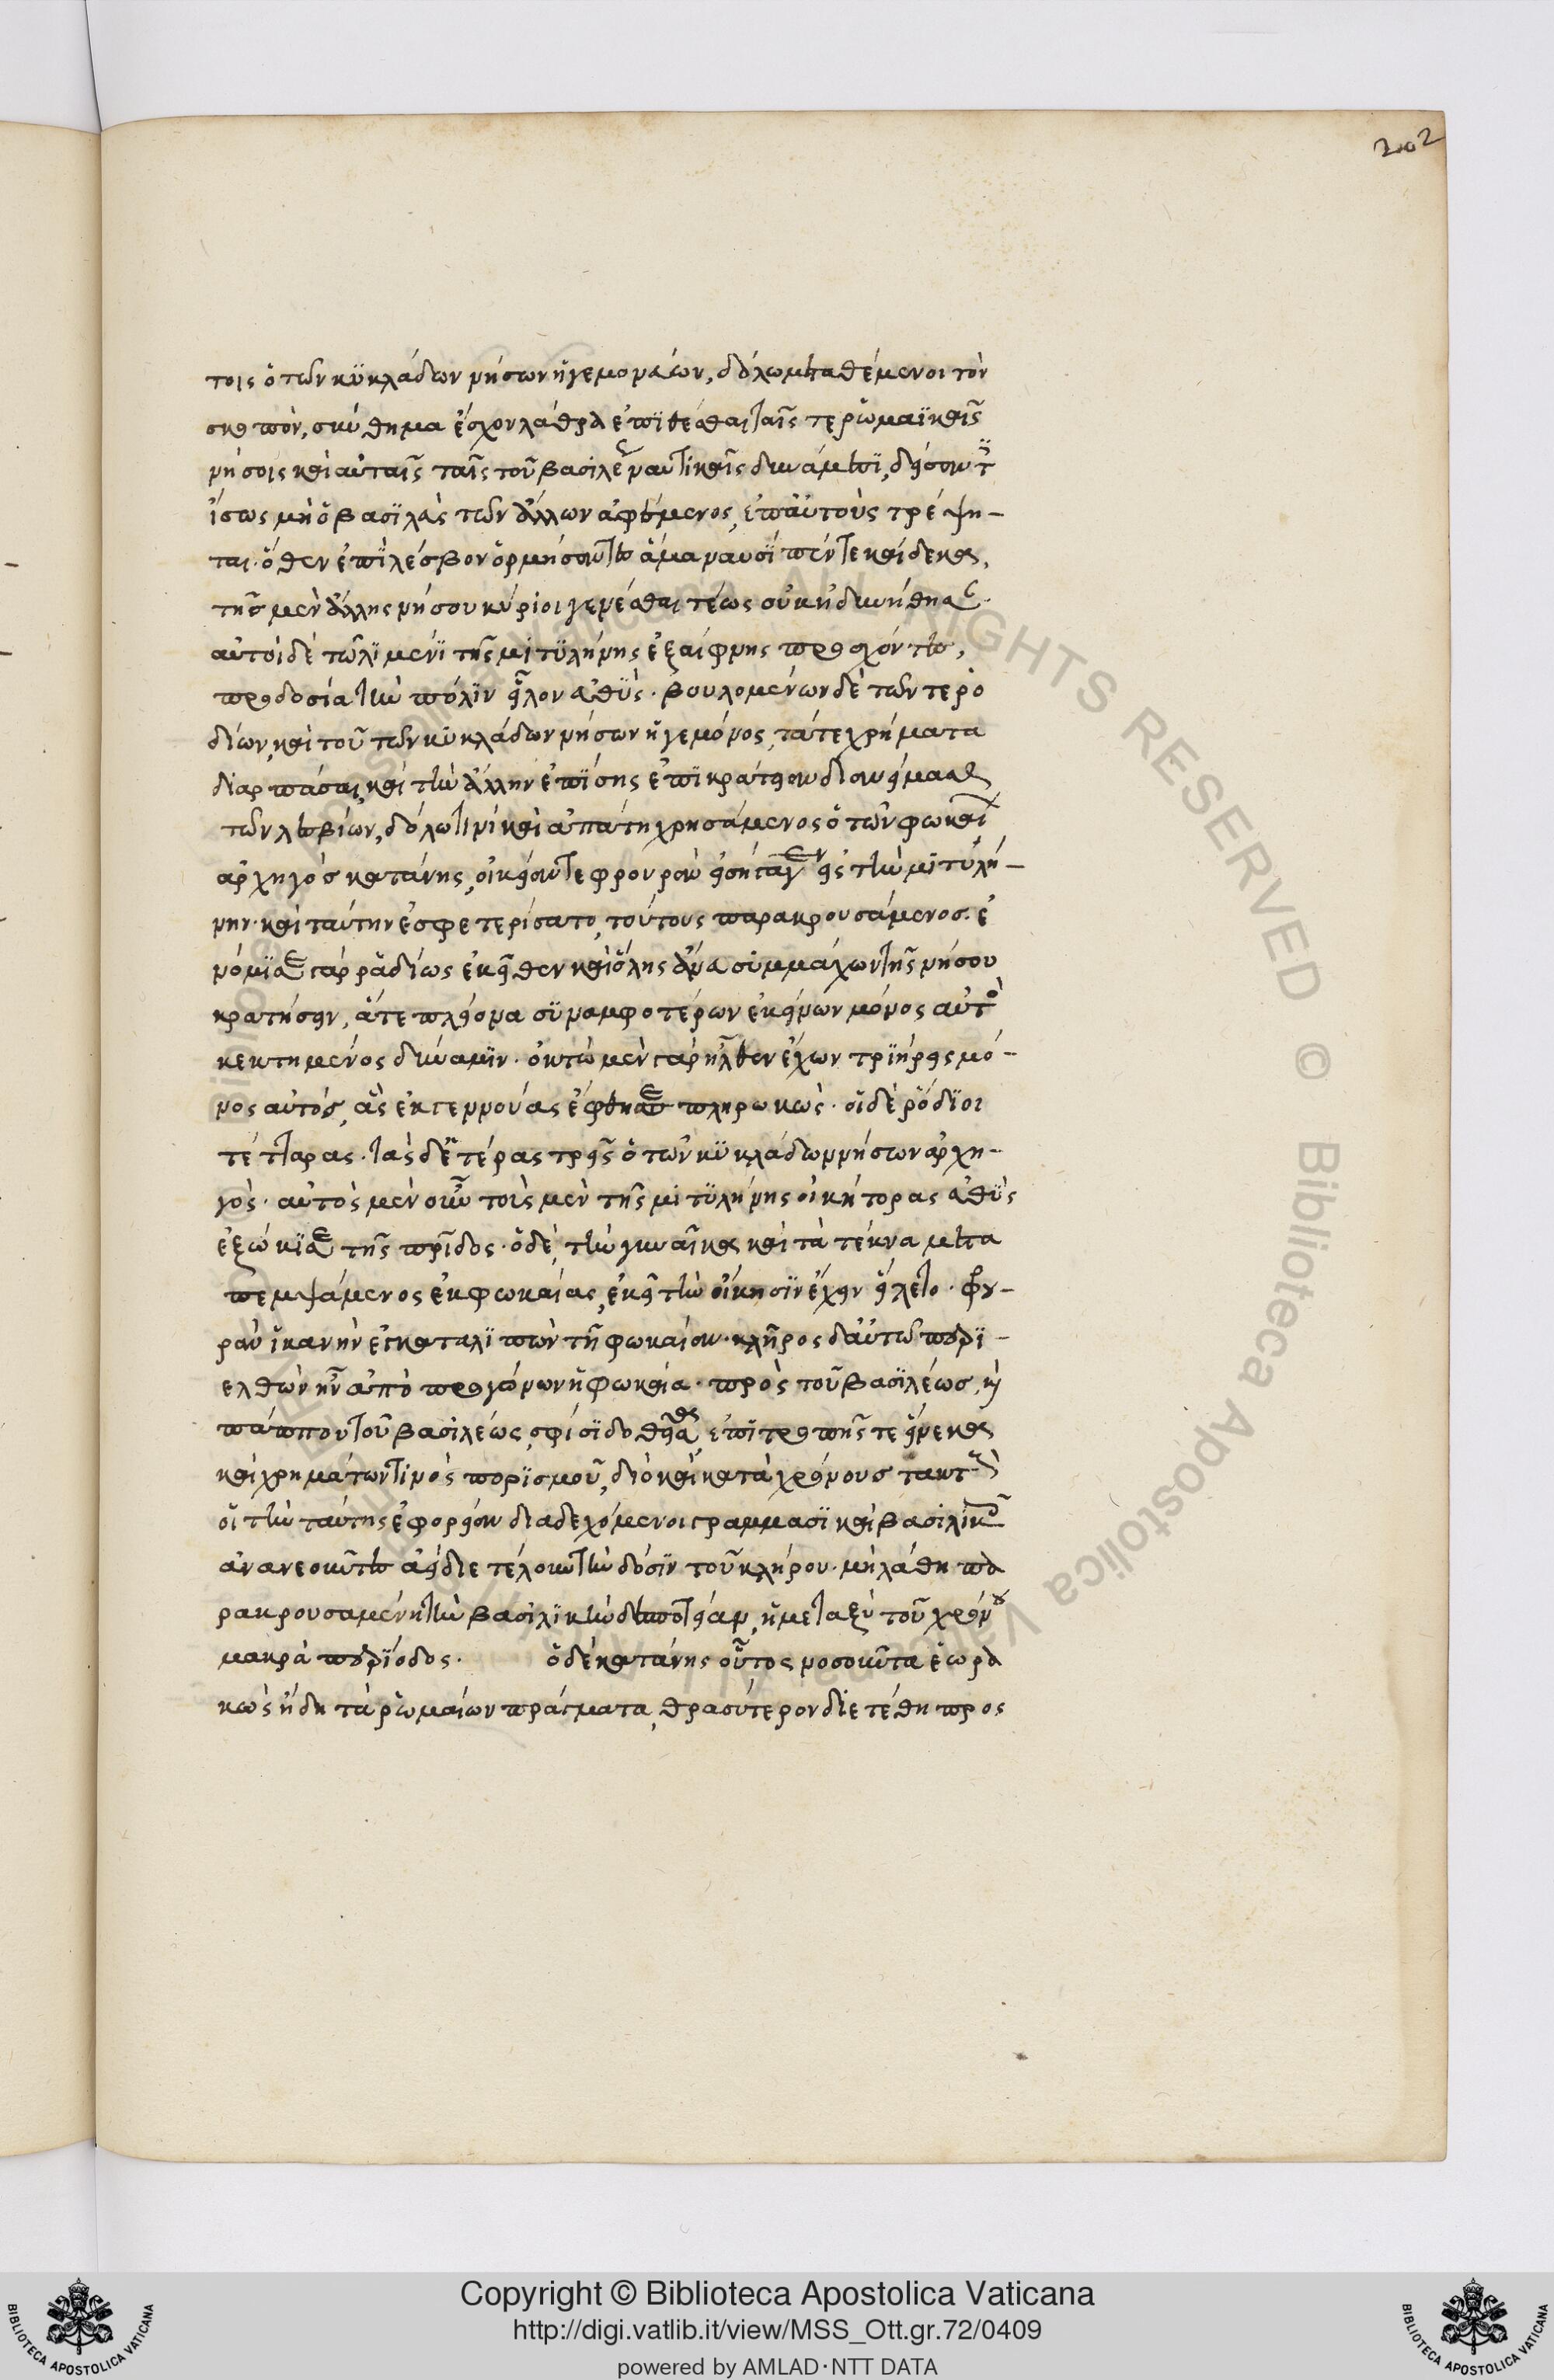 202
τοις ὁ τῶν κυκλάδων νήσων ἡγεμονεύων, δόλω μεταθέμενοι τὸν
σκοπὸν, σύνθημα ἔσχον λάθρα ἐπιθέσθαι ταῖς τε ῥωμαϊκαῖς
νήσοις καὶ αὐταῖς ταῖς τοῦ βασιλέως ναυτικαῖς δυνάμεσι, δείσαντες
ἴσως μὴ ὁ βασιλεὺς τῶν ἄλλων ἀφέμενος, ἐπ' αὐτοὺς τρέψη-
ται. ὅθεν ἐπὶ λέσβον ὁρμήσαντες ἅμα ναυσὶ πέντε καὶ δέκα,
τῆς μὲν ἄλλης νήσου κύριοι γενέσθαι τέως οὐκ ἠδυνήθησαν.
αὐτοὶ δὲ τῶ λιμένι τῆς μιτυλήνης ἐξαίφνης προσχόντες,
προδοσία τὴν πόλιν εἷλον εὐθύς. βουλομένων δὲ τῶν τε ῥο
δίων, καὶ τοῦ τῶν κυκλάδων νήσων ἡγεμόνος, τά τε χρήματα
διαρπάσαι, καὶ τὴν ἄλλην ἐπίσης ἐπικράτειαν διανείμασθαι
τῶν λεσβίων, δόλω τινὶ καὶ ἀπάτη χρησάμενος ὁ τῶν φωκαέων
ἀρχηγὸς κατάνης, οἰκείαν τε φρουρὰν εἰσήγαγεν εἰς τὴν μιτυλή-
νην. καὶ ταύτην ἐσφετερίσατο, τούτους παρακρουσάμενος. ἐ
νόμισε γὰρ ῥαδίως ἐκεῖθεν καὶ ὅλης ἄνευ συμμάχων τῆς νήσου
κρατήσειν, ἅτε πλείονα συναμφοτέρων ἐκείνων μόνος αὐτὸς
κεκτημένος δύναμιν. ὀκτὼ μὲν γὰρ ἦλθεν ἔχων τριήρεις μό-
νος αὐτὸς, ἃς ἐκ γεννούας ἔφθησε πληρωκώς. οἱ δὲ ῥόδιοι
τέτταρας. τὰς δ' ἑτέρας τρεῖς ὁ τῶν κυκλάδων νήσων ἀρχη-
γός. αὐτὸς μὲν οὖν τοὺς μὲν τῆς μιτυλήνης οἰκήτορας εὐθὺς
ἐξώκισε τῆς πατρίδος. ὁ δὲ, τὴν γυναῖκα καὶ τὰ τέκνα μετα
πεμψάμενος ἐκ φωκαίας, ἐκεῖ τὴν οἴκησιν ἔχειν εἵλετο. φρου-
ρὰν ἱκανὴν ἐγκαταλιπὼν τῆ φωκαία. κλῆρος δ' αὐτῶ περι-
ελθὼν ἦν ἀπὸ προγόνων ἡ φωκαία. πρὸς τοῦ βασιλέως, καὶ
πάππου τοῦ βασιλέως, σφίσι δοθεῖσα, ἐπιτροπῆς τε ἕνεκα
καὶ χρημάτων τινὸς πορισμοῦ, διὸ καὶ κατὰ χρόνους τακτοὺς
οἱ τὴν ταύτης ἐφορείαν διαδεχόμενοι γράμμασι καὶ βασιλικοῖς
ἀνανεοῦντες ἀεὶ διετέλουν τὴν δόσιν τοῦ κλήρου. μὴ λάθη πα
ρακρουσαμένη τὴν βασιλικὴν δεσποτείαν, ἡ μεταξὺ τοῦ χρόνου
μακρὰ περίοδος. ὁ δὲ κατάνης οὗτος νοσοῦντα ἑωρα
κὼς ἤδη τὰ ῥωμαίων πράγματα, θρασύτερον διετέθη προς
Copyright © Biblioteca Apostolica Vaticana
http://digi.vatlib.it/view/MSS_Ott.gr.72/0409
powered by AMLAD·NTT DATA